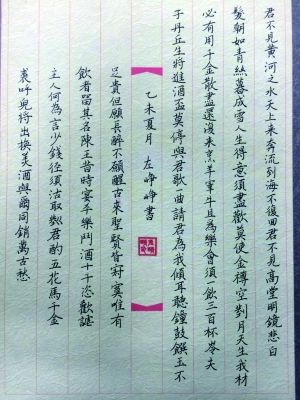 君不見黃河之水天上來奔流到海不復回君不見高堂明鏡悲白
髮朝如青絲暮成雪人生得意須盡歡莫使金樽空對月天生我材
必有用千金散盡還復來烹羊宰牛且為樂會須一飲三百杯岑夫
子丹丘生將進酒盃莫停與君歌一曲請君為我傾耳聽鐘鼓饌玉不
乙未夏月 左崢崢書
足貴但願長醉不願醒古來聖賢皆寂寞唯有
飲者留其名陳王昔時宴平樂鬥酒十千恣歡謔
主人何為言少錢徑須沽取對君酌五花馬千金
裘呼兒將出換美酒與爾同銷萬古愁